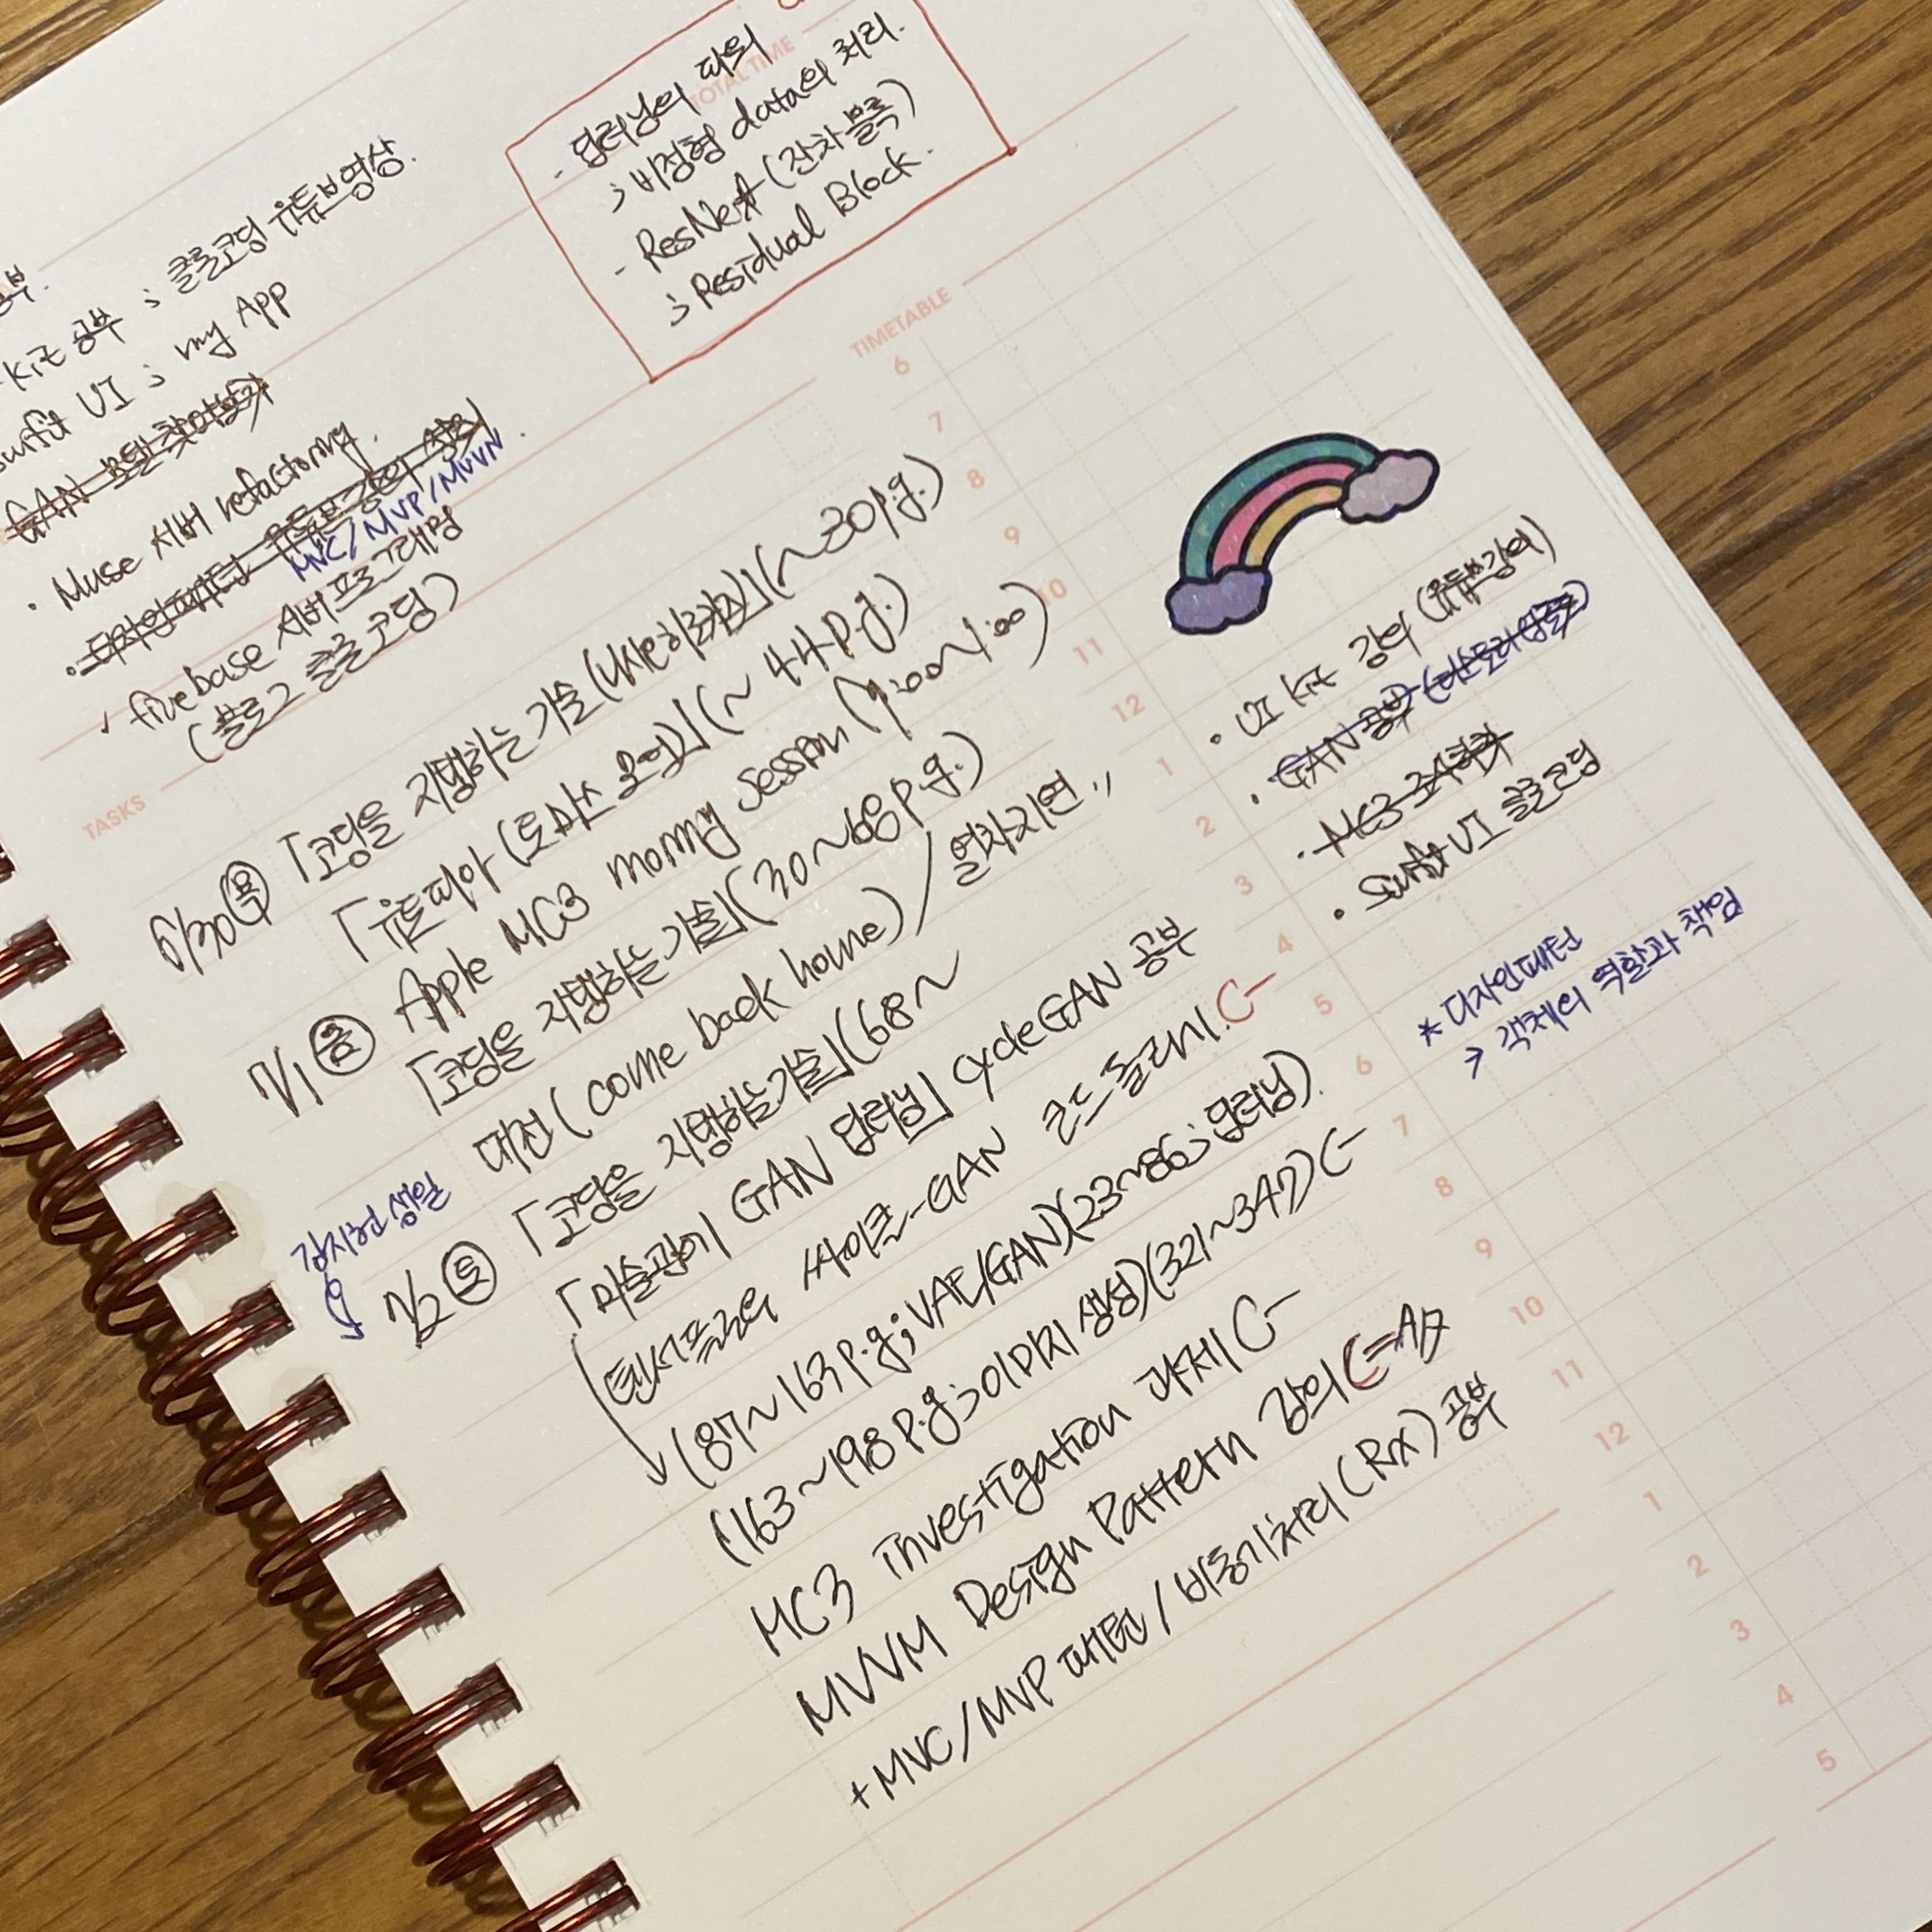 공부.
Kit 공부 ; 클론코딩 유튜브영상.
UI ; my App
GAN 모델 찾아보기
· Muse 서버 refactoring.
· 디자인패턴 유튜브 강의 정리
MVC/MVP/MVVM.
✓ firebase 서버프로그래밍
클론코딩)
TOTAL TIME
- 딥러닝의 파워
; 비정형 data의 처리.
- ResNet (잔차블록)
; Residual Block.
TASKS
TIMETABLE
6
7
8
9
10
11
12
1
2
3
4
5
6
7
8
9
10
11
12
1
2
3
4
5
6/30 목 「코딩을 지탱하는 기술(니시오 히로카즈)」(~30p.g.)
「유토피아 (토마스 모어)」(~44p.g.)
7/1 금 Apple MC3 morning session (9:00~1:00)
「코딩을 지탱하는 기술」(30~68p.g.)
대전 (come back home) / 열차지연..
김지현 생일
7/2 토 「코딩을 지탱하는 기술」(68~
「미술관에 GAN 딥러닝」 cycleGAN 공부
텐서플로의 싸이클-GAN 코드 돌리기.
(23~86; 딥러닝).
(87~163p.g; VAE/GAN)
(163~198p.g; 이미지 생성)(321~347)
MC3 investigation 과제
MVVM Design Pattern 강의
+ MVC/MVP 패턴 / 비동기처리 (Rx) 공부
· UI Kit 강의 (유튜브강의)
· GAN 공부
· MC3 조사하기
· Swift UI 클론코딩
* 디자인패턴
> 객체의 역할과 책임